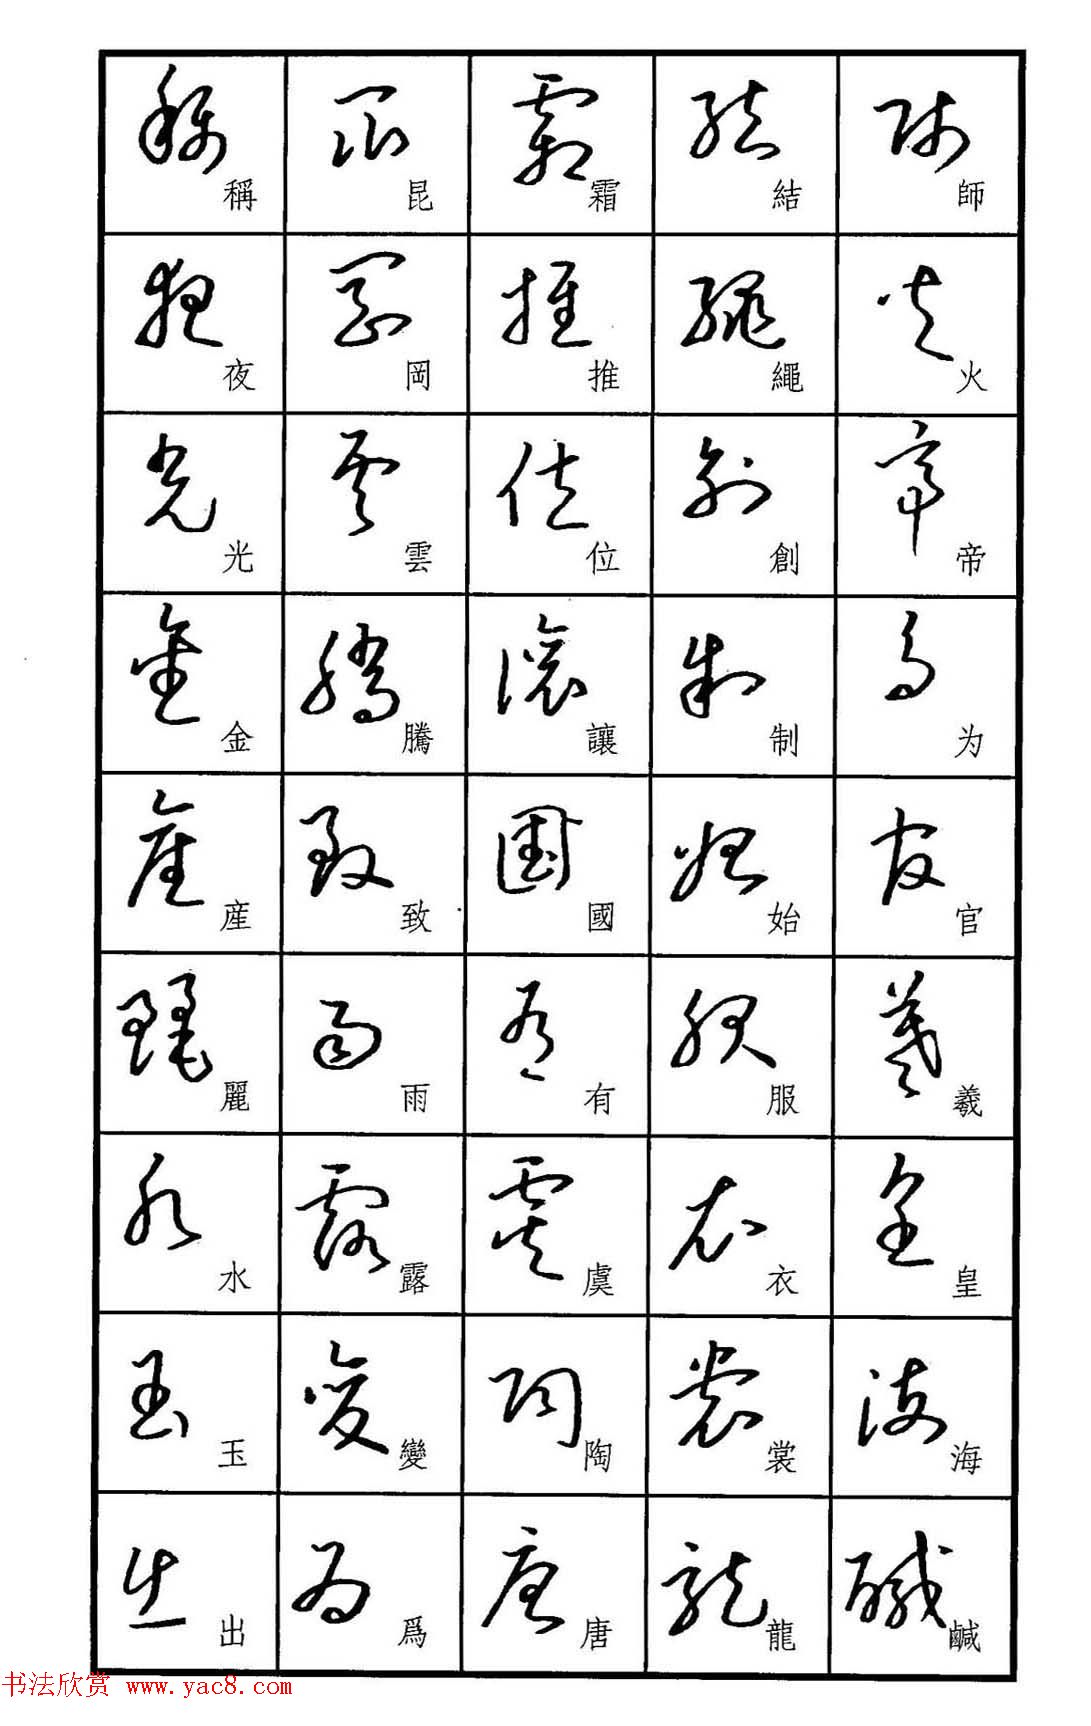 稱 昆 霜 結 師
夜 岡 推 繩 火
光 雲 位 創 帝
金 騰 讓 制 为
産 致 國 始 官
麗 雨 有 服 羲
水 露 虞 衣 皇
玉 變 陶 裳 海
出 爲 唐 龍 鹹
书法欣赏 www.yac8.com